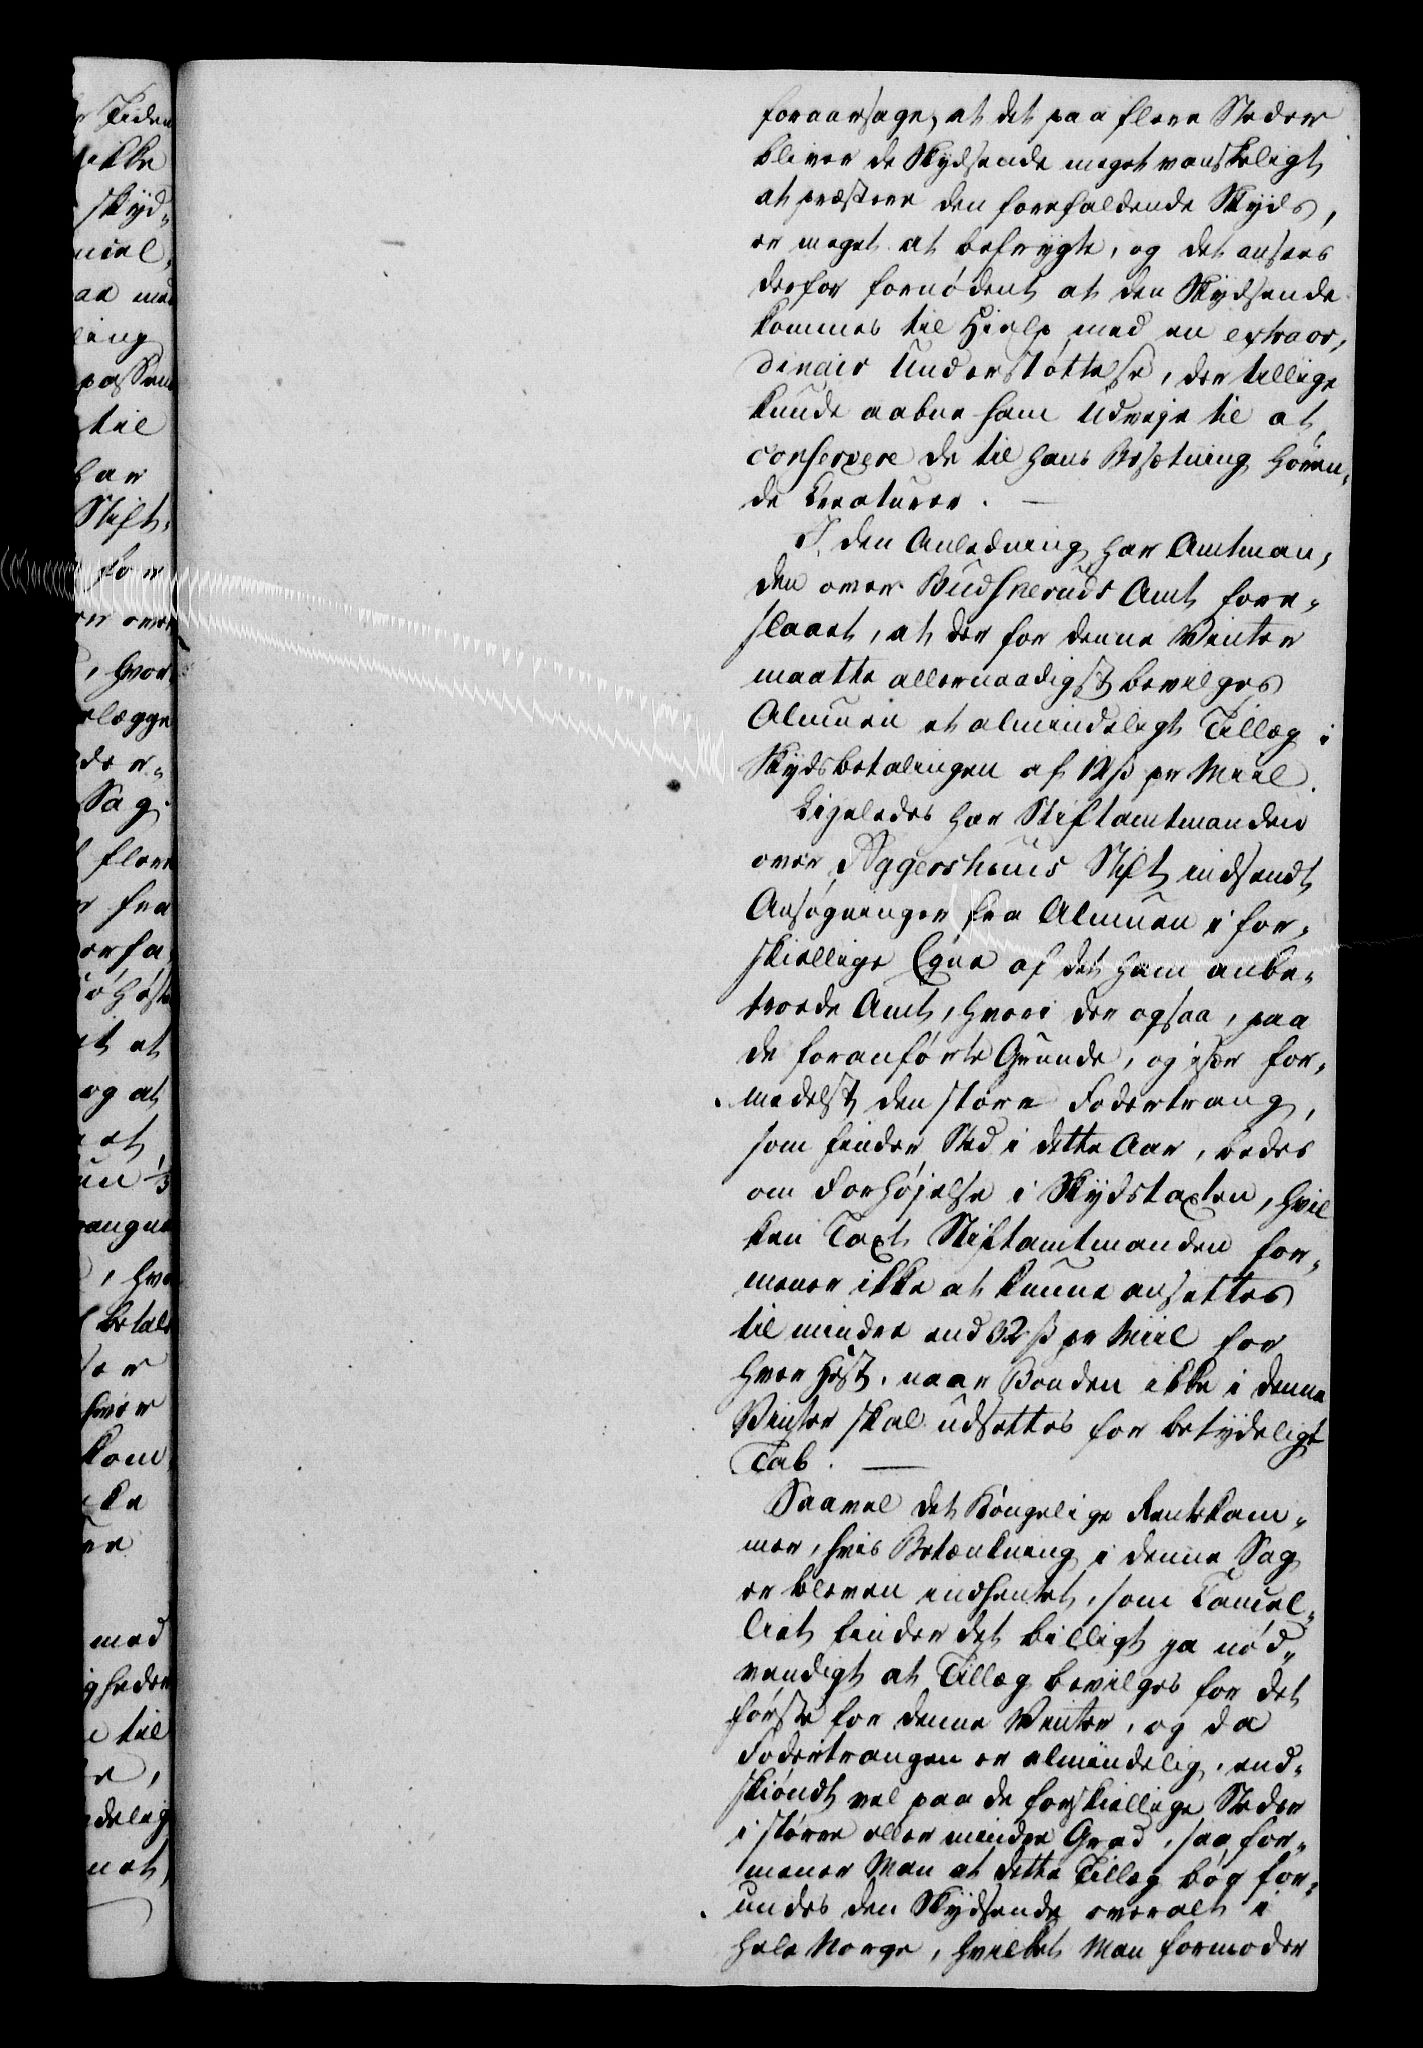 r Tiden
ikke
skyd-
ncel,
aa med
ling
passen
til
har
Stift,
for
er over
, hvor
elægge
der-
Sag
flere
r fra
orfa
ö Heste
it at
og at
et
un 1/3
rangne
, hvo
betale
er
hver
kom
ke
re
med
gheder
e til
e,
deleg
net,
foraarsage, at det paa flere Steder
bliver de Skydsende meget vanskeligt
at præstere den forefaldende Skyds,
er meget at befrygte, og det ansees
derfor fornødent at den Skydsende
kommes til Hielp med en extraor,
dinair Understøttelse, der tillige
kunde aabne ham Udveje til at
conservere de til hans Besætning høren,
de Creaturer. —
I den Anledning har Amtman,
den over Budskeruds Amt fore-
slaaet, at der for denne Vinter
maatte allernaadigst bevilges
Almuen et almindeligt Tillæg i
Skydsbetalingen af 12 ß pr Miil.
Ligeledes har Stiftamtmanden
over Aggershuus Stift indsendt
Ansøgninger fra Almuen i for-
skiellige Egne af det ham anbe-
troede Amt, hvori der ogsaa, paa
de foranførte Grunde, og især for-
medelst den store Fodertrang,
som finder Sted i dette Aar, bedes
om Forhøjelse i Skydstaxten, hvil
ken Taxt Stiftamtmanden for-
mener ikke at kunne ansættes
til mindre end 32 ß pr Miil for
hver Hest, naar Bonden ikke i denne
Vinter skal udsættes for betydeligt
Tab. —
Saavel det Kongelige Rentekam-
mer, hvis Betænkning i denne Sag
er bleven indhentet, som Cancel-
liet finder det billigt ja nød-
vendigt at Tillæg bevilges for det
første for denne Vinter, og da
Fodertrangen er almindelig, end-
skiøndt vel paa de forskiellige Steder
i større eller mindre Grad, saa for-
mener Man at dette Tillæg bør for-
undes den Skydsende overalt i
hele Norge, hvilket Man formoder